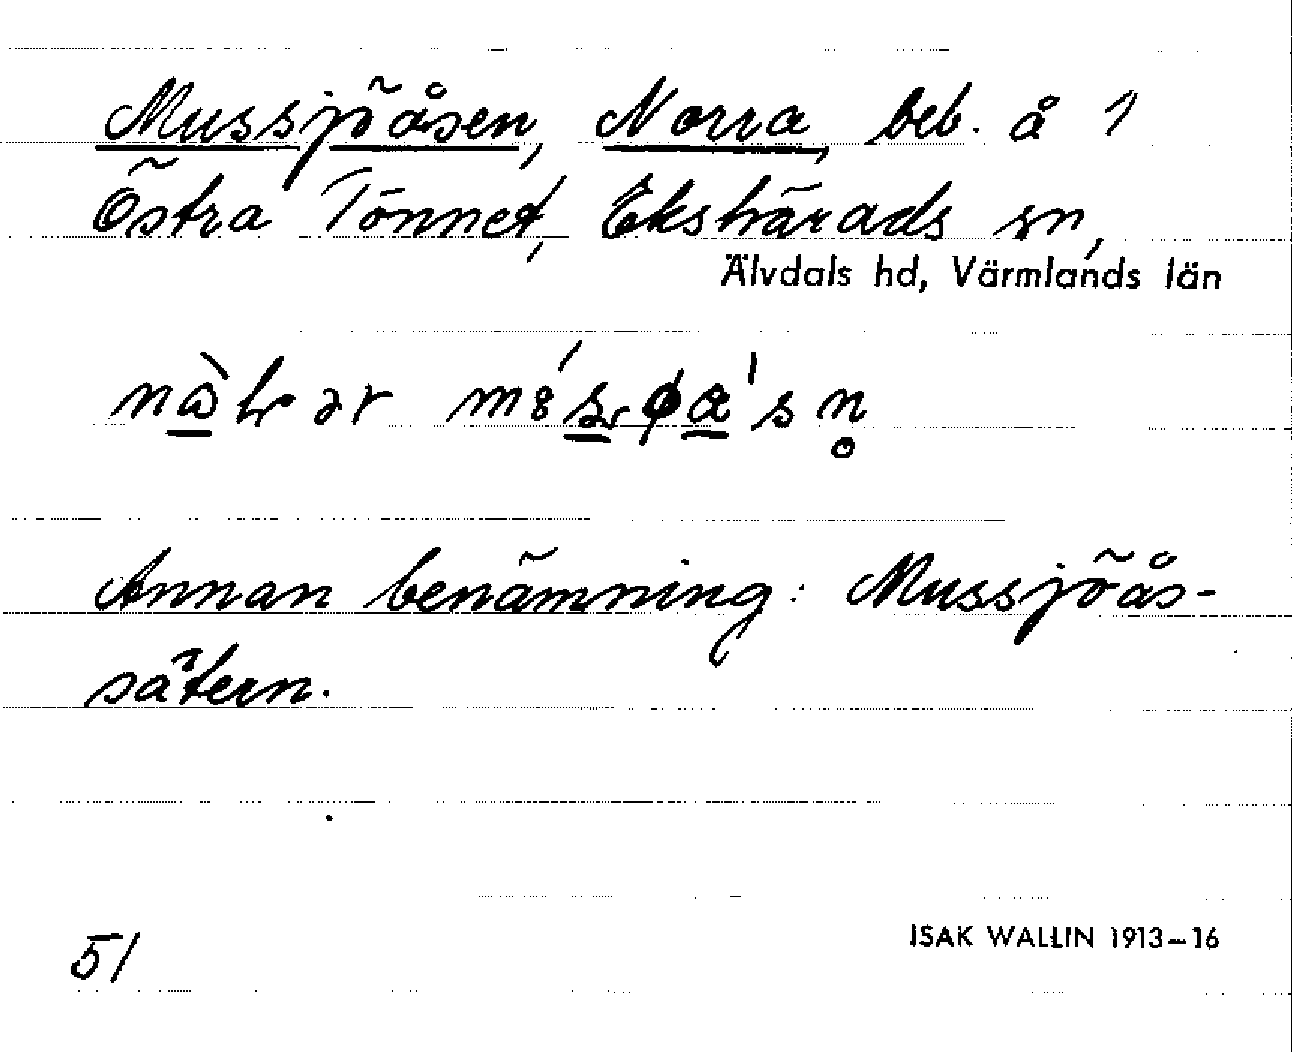 Mussjöåsen, Norra, beb. å 1
Östra Tönnet, Ekshärads sn,
Älvdals hd, Värmlands län
Annan benämning: Mussjöås-
sätern.
51
ISAK WALLIN 1913–16